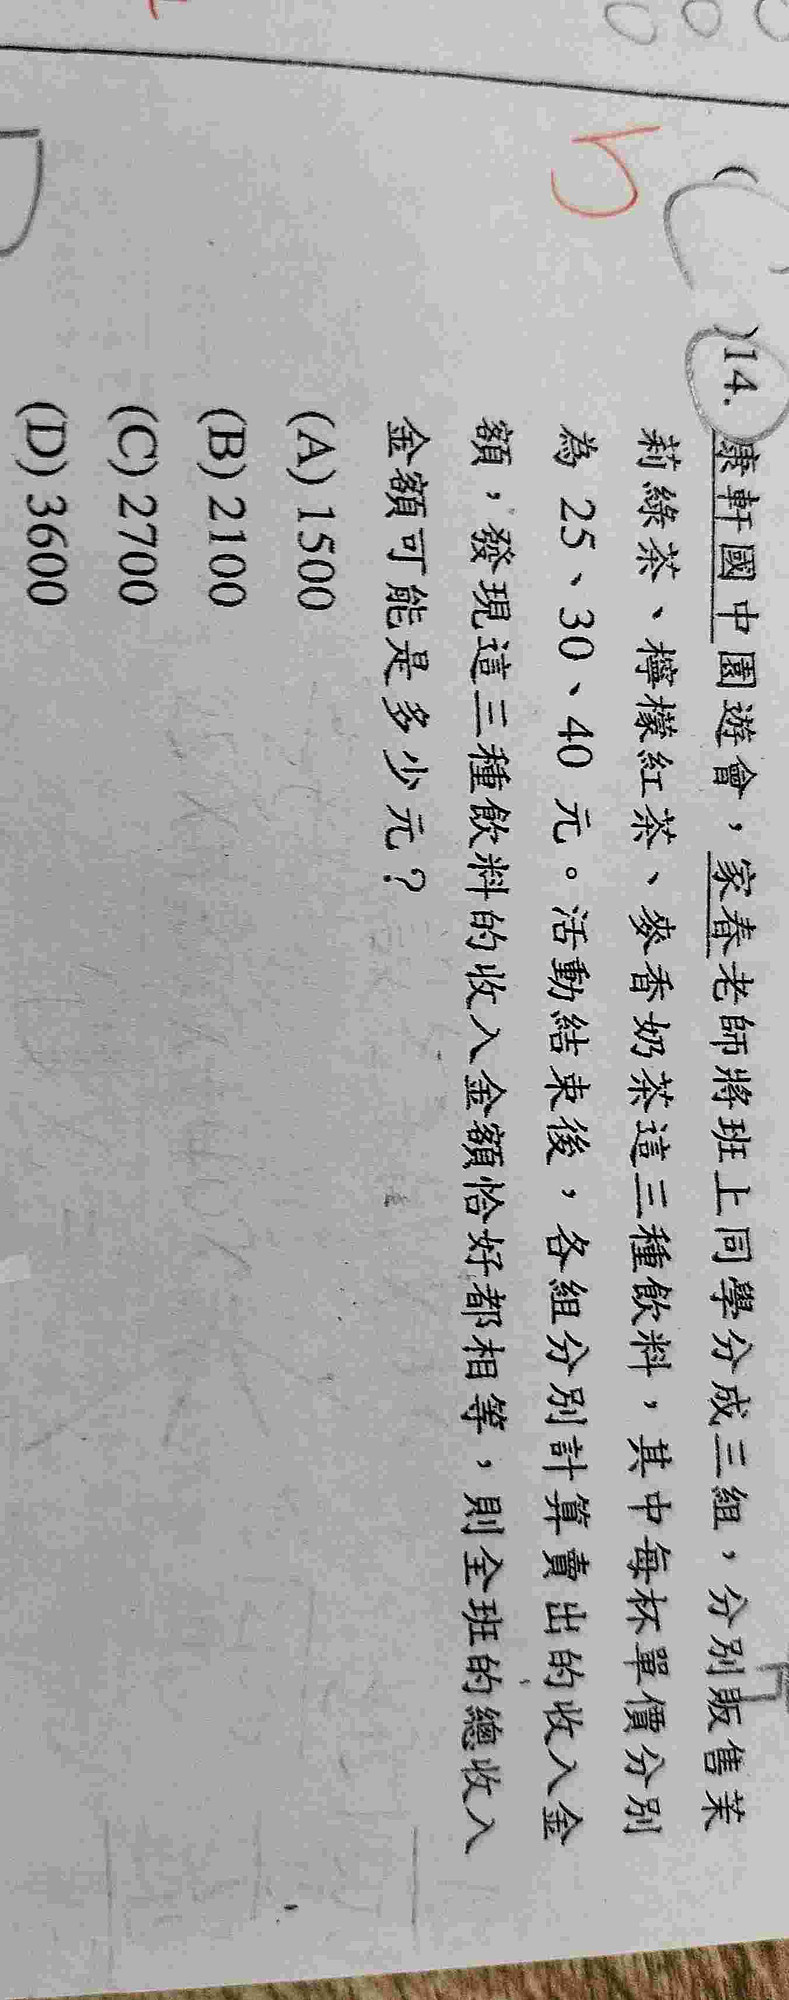 (C)14. 康軒國中園遊會，家春老師將班上同學分成三組，分別販售茉
莉綠茶、檸檬紅茶、麥香奶茶這三種飲料，其中每杯單價分別
為 25、30、40 元。活動結束後，各組分別計算賣出的收入金
額，發現這三種飲料的收入金額恰好都相等，則全班的總收入
金額可能是多少元？
(A) 1500
(B) 2100
(C) 2700
(D) 3600